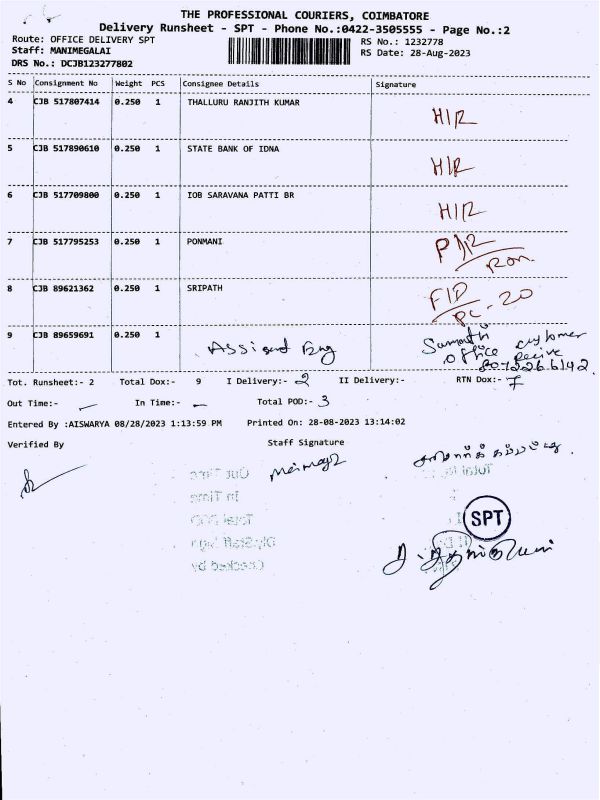 THE PROFESSIONAL COURIERS, COIMBATORE
Delivery Runsheet - SPT - Phone No.:0422-3505555 - Page No.:2
Route: OFFICE DELIVERY SPT RS No.: 1232778
Staff: MANIMEGALAI RS Date: 28-Aug-2023
DRS No.: DCJB123277802
S No Consignment No Weight PCS Consignee Details Signature
4 CJB 517807414 0.250 1 THALLURU RANJITH KUMAR H/R
5 CJB 517890610 0.250 1 STATE BANK OF IDNA H/R
6 CJB 517709800 0.250 1 IOB SARAVANA PATTI BR H/R
7 CJB 517795253 0.250 1 PONMANI
8 CJB 89621362 0.250 1 SRIPATH F/D
PC-20
9 CJB 89659691 0.250 1 customer
office
Tot. Runsheet:- 2 Total Dox:- 9 I Delivery:- 2 II Delivery:- RTN Dox:- 7
Out Time:- – In Time:- – Total POD:- 3
Entered By :AISWARYA 08/28/2023 1:13:59 PM Printed On: 28-08-2023 13:14:02
Verified By Staff Signature
SPT